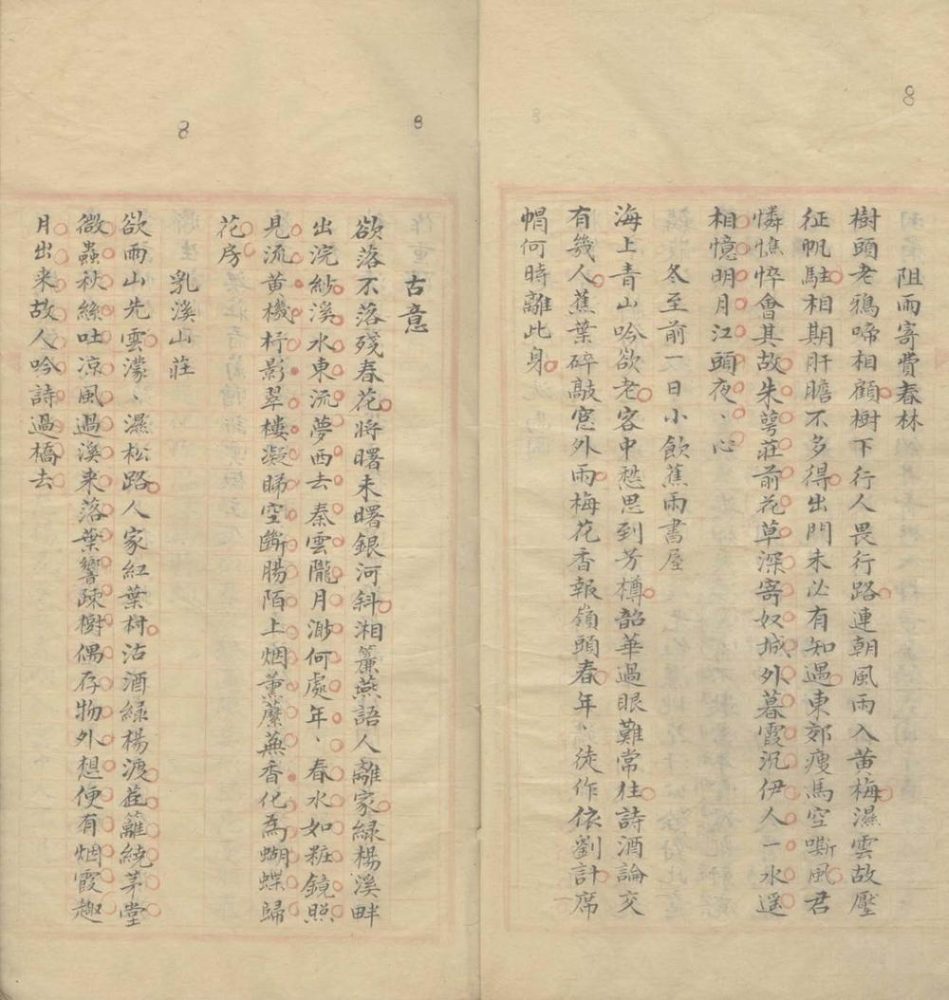 8
阻雨寄費春林
樹頭老鴉啼相顧樹下行人畏行路連朝風雨入黃梅濕雲故壓
征帆駐相期肝膽不多得出門未必有知遇東郊瘦馬空嘶風君
憐憔悴會其故朱萼莊前花草深寄奴城外暮霞沉伊人一水遥
相憶明月江頭夜、心
冬至前一日小飲蕉雨書屋
海上青山吟欲老客中愁思到芳樽韶華過眼難常住詩酒論交
有幾人蕉葉碎敲窓外雨梅花香報嶺頭春年、徒作依劉計席
帽何時離此身
8
古意
欲落不落殘春花將曙未曙銀河斜湘簾燕語人離家綠楊溪畔
出浣紗溪水東流夢西去秦雲隴月渺何處年、春水如粧鏡照
見流黃機杼影翠樓凝睇空斷腸陌上烟薰蘼蕪香化為蝴蝶歸
花房
8
乳溪山莊
欲雨山先雲濛、濕松路人家紅葉村沽酒綠楊渡荭籬繞茅堂
微蟲秋絲吐凉風過溪来落葉響疎樹偶存物外想便有烟霞趣
月出来故人吟詩過橋去